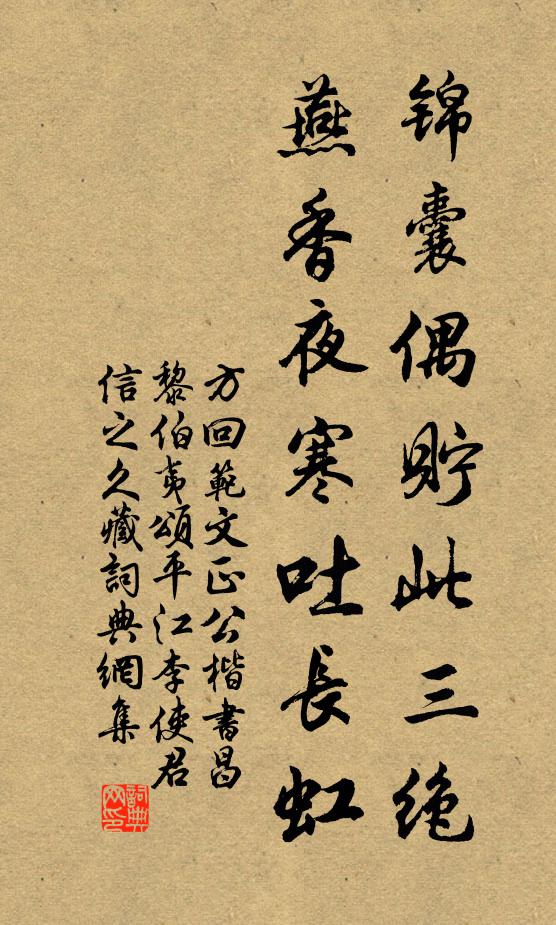 锦囊偶貯此三绝
燕香夜寒吐長虹
方回範文正公楷書昌
黎伯夷頌平江李使君
信之久藏詞典網集
詞典网印